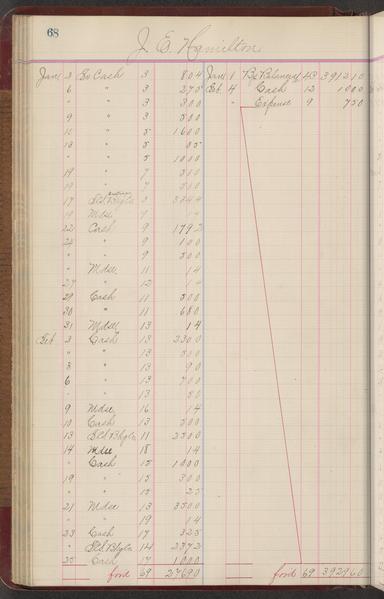 68
J. E. Hamilton
Jany 2 To Cash 3 804 Jany 1 By Balance 43 391210
6 " 3 275 Feb 4 Cash 12 1000
" " 3 300 " Expense 9 750
9 " 3 500
10 " 5 1600
13 " 5 55
" " 5 1000
19 " 7 500
" " 7 500
17 3 3444
19 Mdse 9 14
22 Cash 9 1792
24 " 9 100
" " 9 500
" Mdse 11 14
27 " 12 14
29 Cash 11 500
30 " 11 680
31 Mdse 13 14
Feb 2 Cash 13 2300
" " 13 500
3 " 13 90
6 " 13 700
" " 13 50
9 Mdse 16 14
10 Cash 13 500
13 11 2500
14 Mdse 18 14
" Cash 15 1000
19 " 15 300
" " 15 25
21 Mdse 13 3500
" " 19 14
23 Cash 17 325
" 14 2372
25 Cash 17 1000
ford 69 27690 ford 69 392960